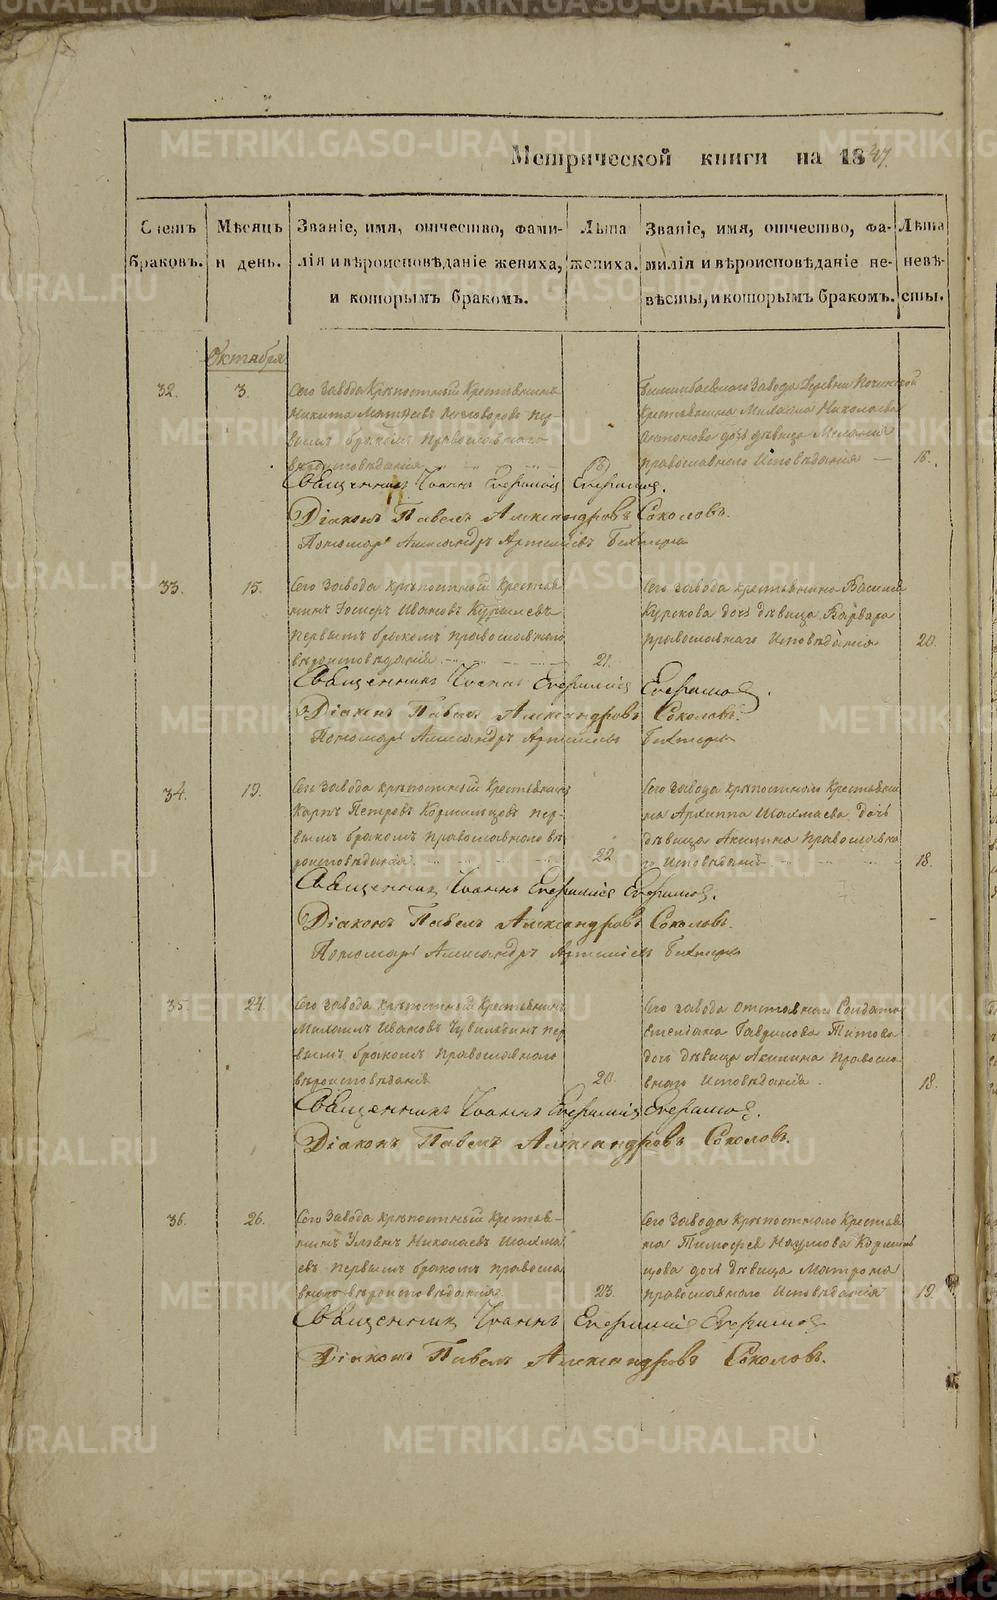 METRIKI.GASO-URAL.RU
Метрической книги на 1847.
Счетъ браковъ.
Мѣсяцъ и день.
Званіе, имя, отчество, фами-
лія и вѣроисповѣданіе жениха,
и которымъ бракомъ.
Лѣта жениха.
Званіе, имя, отчество, фа-
милія и вѣроисповѣданіе не-
вѣсты, и которымъ бракомъ.
Лѣта невѣ-
сты.
Октября
32. 3.
Сего завода Крѣпостный Крестьянинъ
Никита пер-
вымъ бракомъ православнаго
вѣроисповѣданія
завода Деревни
Крестьянина Михаила Николаева
дочь дѣвица Меланія
православнаго Исповѣданія — 16.
Священникъ Іоаннъ Евфиміевъ
Діаконъ Павелъ Александровъ Соколовъ.
Пономарь Александръ Артеміевъ
33. 15.
Сего завода крѣпостный крестья
нинъ Иванов
первымъ бракомъ православнаго
вѣроисповѣданія 21.
Сего завода крестьянина Василія
Курокова дочь дѣвица Варвара
православнаго Исповѣданія 20.
Священникъ Іоаннъ Евфиміевъ
Діаконъ Павелъ Александровъ Соколовъ.
Пономарь Александръ Артеміевъ
34. 19.
Сего завода крѣпостный Крестьянинъ
Карпъ Петровъ Кормильцовъ пер-
вымъ бракомъ православнаго вѣ
роисповѣданія 22
Сего завода крѣпостнаго Крестьяни
на Архиппа Шалмаева дочь
дѣвица Акилина православна
го Исповѣданія 18.
Священникъ Іоаннъ Евфиміевъ
Діаконъ Павелъ Александровъ Соколовъ.
Пономарь Александръ Артеміевъ
35 24.
Сего завода крѣпостный Крестьянинъ
Михаилъ Ивановъ пер
вымъ бракомъ православнаго
вѣроисповѣданія 20.
Сего завода отставнаго Солдата
Гаврилова Титова
дочь дѣвица Акилина правосла-
внаго Исповѣданія. 18.
Священникъ Іоаннъ Евфиміевъ
Діаконъ Павелъ Александровъ Соколовъ.
36. 26.
Сего завода крѣпостный крестья-
нинъ Ульянъ Николаевъ Шалма
евъ первымъ бракомъ правосла
внаго вѣроисповѣданія. 23.
Сего завода крѣпостнаго Крестьяни
на Тимофея Наумова Кормиль
цова дочь дѣвица Матрона
православнаго Исповѣданія 19.
Священникъ Іоаннъ Евфиміевъ
Діаконъ Павелъ Александровъ Соколовъ.